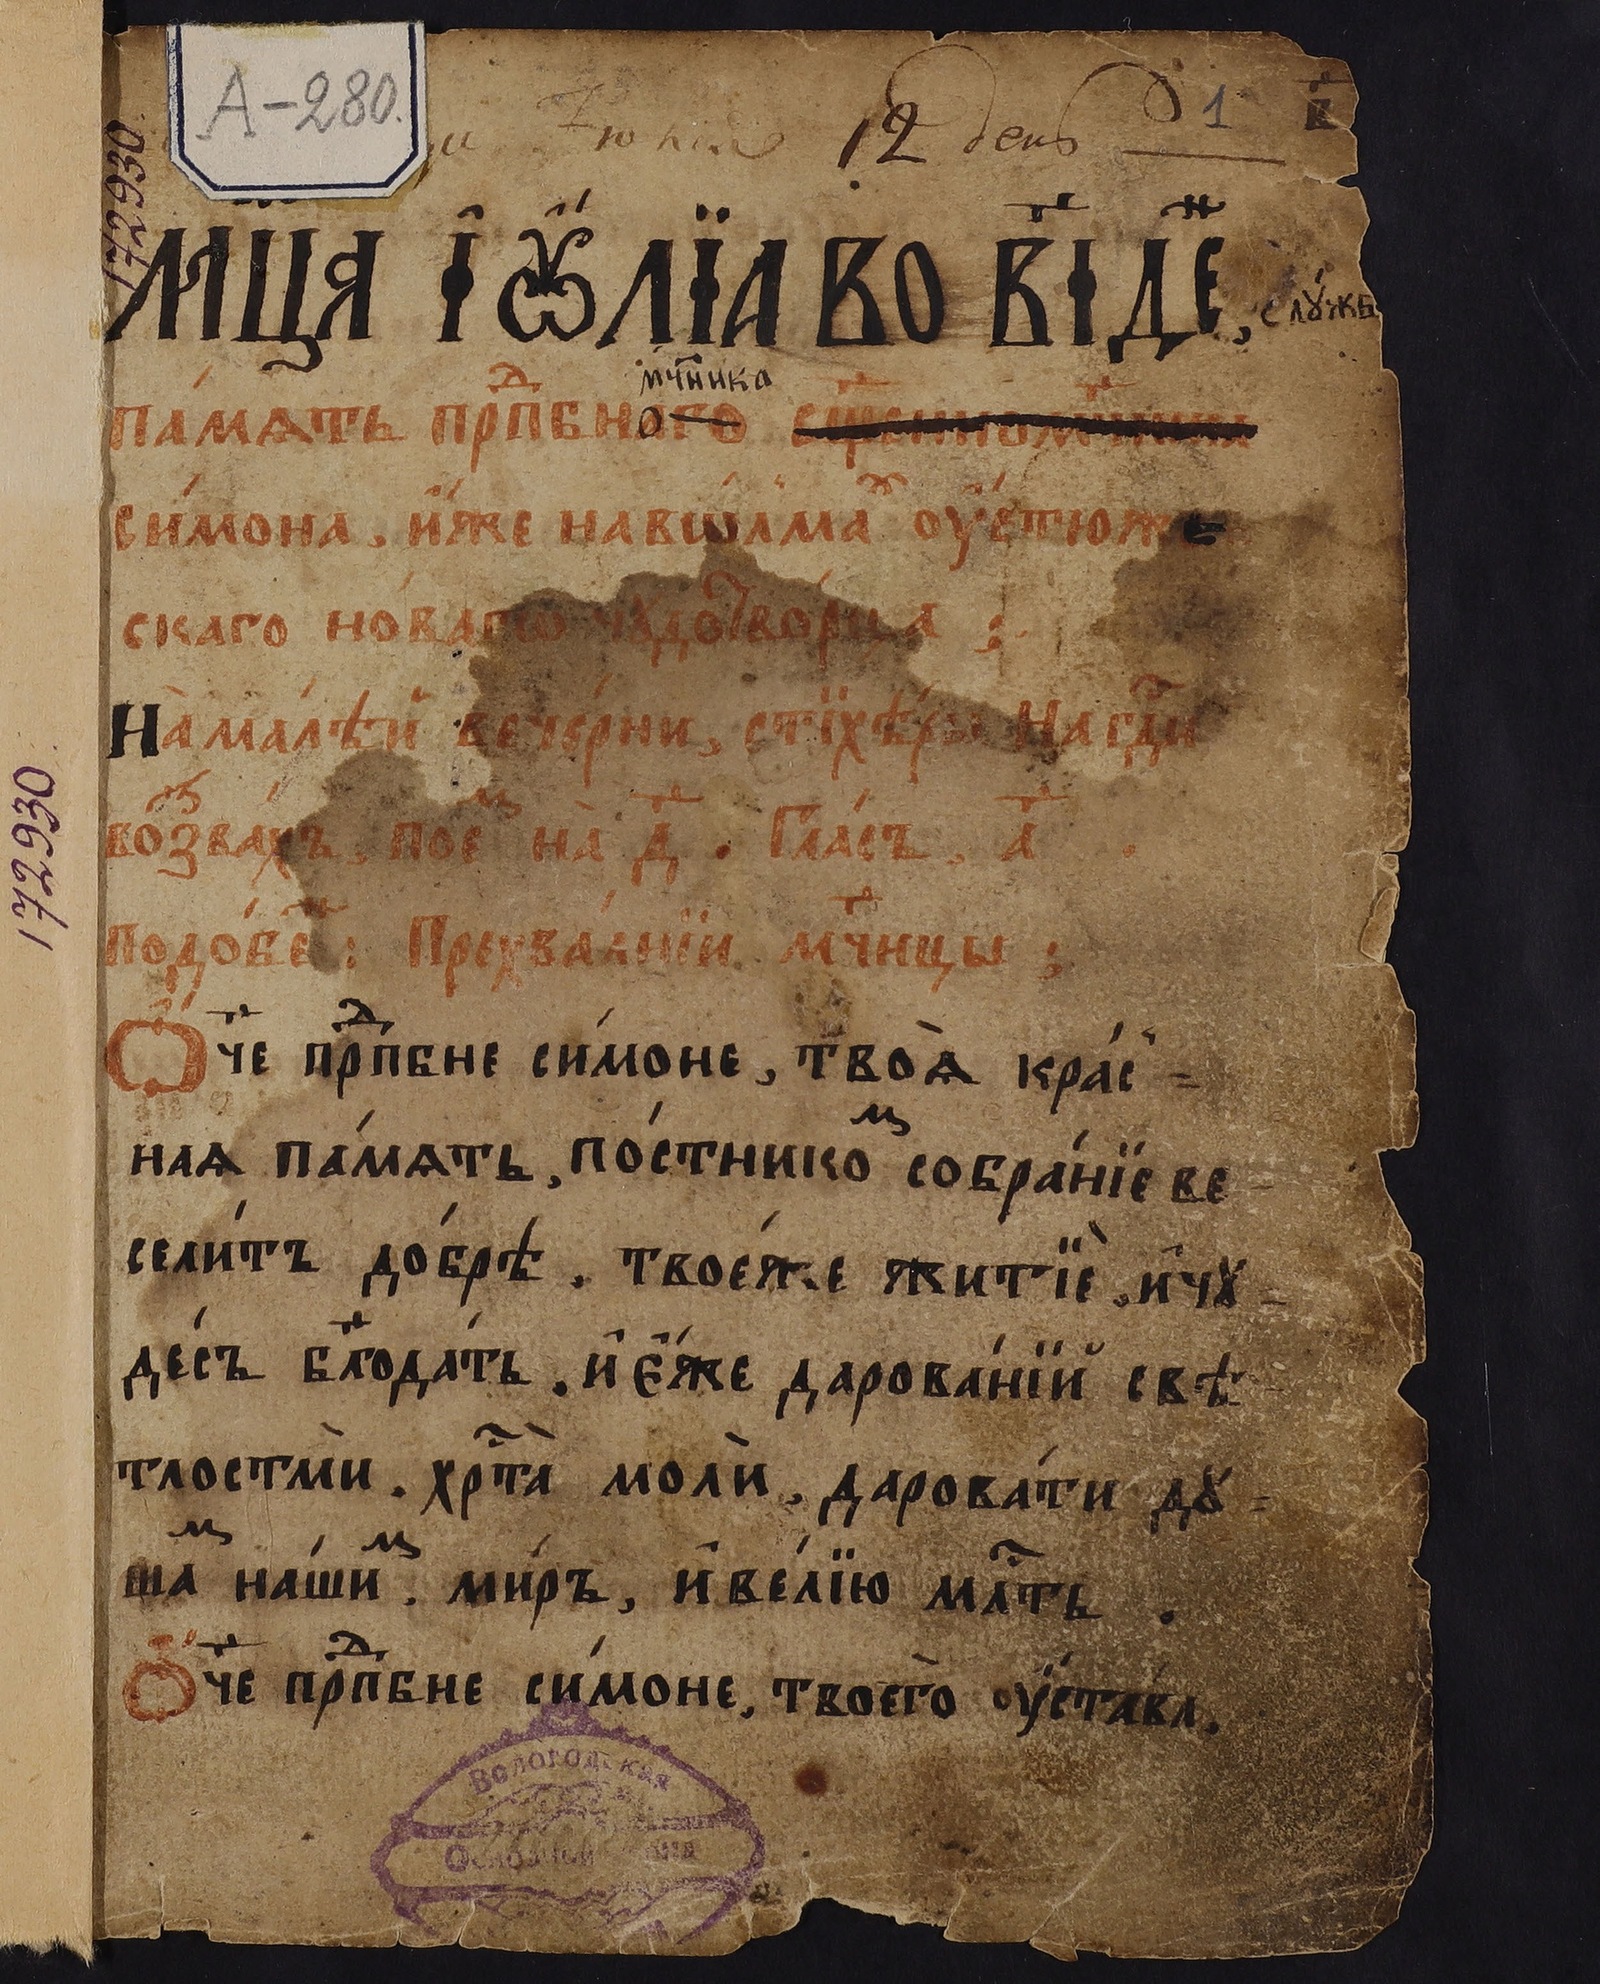 А-280.
12 день 1
172930
мц҇а і҆ѹ҆лїа во в҃і де҃, слꙋ́жб
мч҃ника
па́мѧть прпⷣбнаго сщ҃енномч҃ника
си́мона, и҆́же на во́лмаⷯ оу҆́стюже
скаго но́ваго чюдотво́рца :
На ма́лѣй вече́рни, стїхѣ́ры На гдⷭ҇и
воззва́хъ, поеⷨ на̀ д҃. Гла́съ, а҃.
Подо́беⷩ: Прехва́лнїи мч҃нцы :
О҆́ч҃е прпⷣбне си́моне, твоѧ̀ кра́с=
наѧ па́мѧть, по́стникоⷨ собра́нїе ве
сели́тъ до́брѣ. твое́же житїѐ, и҆ чꙋ=
де́съ бл҃года́ть. и҆ є҆́же дарова́нїй свѣ
тлостмѝ. хрⷭ҇та̀ молѝ, дарова́ти дꙋ=
шаⷨ на́шиⷨ. ми́ръ, и҆ ве́лїю млⷭ҇ть.
О҆́ч҃е прпⷣбне си́моне, твоего̀ оу҆ста́вл,
Вологодская
172930